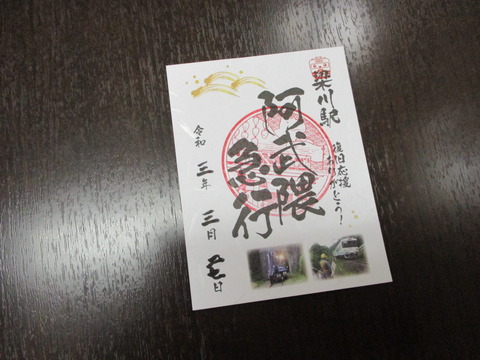 梁川駅
復旧応援
ありがとう!
阿武隈
急行
令和三年三月
日